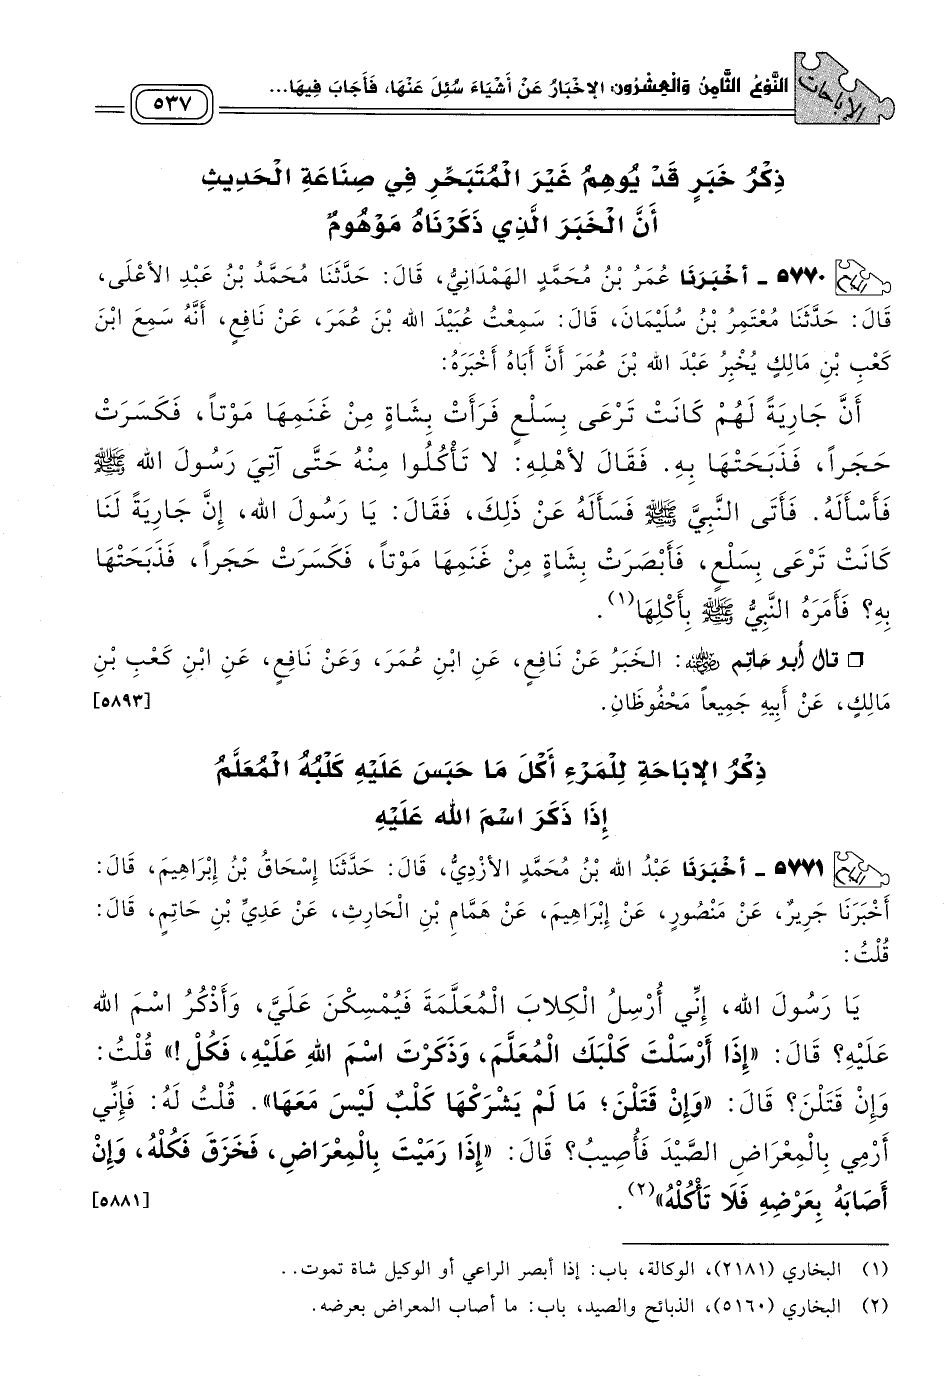 الإباحات
النَّوْعُ الثَّامِنُ وَالْعِشْرُون: الإِخْبَارُ عَنْ أَشْيَاءَ سُئِلَ عَنْهَا، فَأَجَابَ فِيهَا...
٥٣٧
ذِكْرُ خَبَرٍ قَدْ يُوهِمُ غَيْرَ الْمُتَبَحِّرِ فِي صِنَاعَةِ الْحَدِيثِ
أَنَّ الْخَبَرَ الَّذِي ذَكَرْنَاهُ مَوْهُومٌ
٥٧٧٠ - أَخْبَرَنَا عُمَرُ بْنُ مُحَمَّدٍ الهَمْدَانِيُّ، قَالَ: حَدَّثَنَا مُحَمَّدُ بْنُ عَبْدِ الأَعْلَى،
قَالَ: حَدَّثَنَا مُعْتَمِرُ بْنُ سُلَيْمَانَ، قَالَ: سَمِعْتُ عُبَيْدَ الله بْنَ عُمَرَ، عَنْ نَافِعٍ، أَنَّهُ سَمِعَ ابْنَ
كَعْبِ بْنِ مَالِكٍ يُخْبِرُ عَبْدَ الله بْنَ عُمَرَ أَنَّ أَبَاهُ أَخْبَرَهُ:
أَنَّ جَارِيَةً لَهُمْ كَانَتْ تَرْعَى بِسَلْعٍ فَرَأَتْ بِشَاةٍ مِنْ غَنَمِهَا مَوْتاً، فَكَسَرَتْ
حَجَراً، فَذَبَحَتْهَا بِهِ. فَقَالَ لأَهْلِهِ: لا تَأْكُلُوا مِنْهُ حَتَّى آتِيَ رَسُولَ الله ﷺ
فَأَسْأَلَهُ. فَأَتَى النَّبِيَّ ﷺ فَسَأَلَهُ عَنْ ذَلِكَ، فَقَالَ: يَا رَسُولَ الله، إِنَّ جَارِيَةً لَنَا
كَانَتْ تَرْعَى بِسَلْعٍ، فَأَبْصَرَتْ بِشَاةٍ مِنْ غَنَمِهَا مَوْتاً، فَكَسَرَتْ حَجَراً، فَذَبَحَتْهَا
بِهِ؟ فَأَمَرَهُ النَّبِيُّ ﷺ بِأَكْلِهَا(١).
□ قال أبو حاتم رضي الله عنه: الخَبَرُ عَنْ نَافِعٍ، عَنِ ابْنِ عُمَرَ، وَعَنْ نَافِعٍ، عَنِ ابْنِ كَعْبِ بْنِ
مَالِكٍ، عَنْ أَبِيهِ جَمِيعاً مَحْفُوظَانِ. [٥٨٩٣]
ذِكْرُ الإِبَاحَةِ لِلْمَرْءِ أَكْلَ مَا حَبَسَ عَلَيْهِ كَلْبُهُ الْمُعَلَّمُ
إِذَا ذَكَرَ اسْمَ الله عَلَيْهِ
٥٧٧١ - أَخْبَرَنَا عَبْدُ الله بْنُ مُحَمَّدٍ الأَزْدِيُّ، قَالَ: حَدَّثَنَا إِسْحَاقُ بْنُ إِبْرَاهِيمَ، قَالَ:
أَخْبَرَنَا جَرِيرٌ، عَنْ مَنْصُورٍ، عَنْ إِبْرَاهِيمَ، عَنْ هَمَّامِ بْنِ الْحَارِثِ، عَنْ عَدِيِّ بْنِ حَاتِمٍ، قَالَ:
قُلْتُ:
يَا رَسُولَ الله، إِنِّي أُرْسِلُ الْكِلابَ الْمُعَلَّمَةَ فَيُمْسِكْنَ عَلَيَّ، وَأَذْكُرُ اسْمَ الله
عَلَيْهِ؟ قَالَ: «إِذَا أَرْسَلْتَ كَلْبَكَ الْمُعَلَّمَ، وَذَكَرْتَ اسْمَ اللهِ عَلَيْهِ، فَكُلْ!» قُلْتُ:
وَإِنْ قَتَلْنَ؟ قَالَ: «وَإِنْ قَتَلْنَ؛ مَا لَمْ يَشْرَكْهَا كَلْبٌ لَيْسَ مَعَهَا». قُلْتُ لَهُ: فَإِنِّي
أَرْمِي بِالْمِعْرَاضِ الصَّيْدَ فَأُصِيبُ؟ قَالَ: «إِذَا رَمَيْتَ بِالْمِعْرَاضِ، فَخَزَقَ فَكُلْهُ، وَإِنْ
أَصَابَهُ بِعَرْضِهِ فَلَا تَأْكُلْهُ»(٢). [٥٨٨١]
(١) البخاري (٢١٨١)، الوكالة، باب: إذا أبصر الراعي أو الوكيل شاة تموت..
(٢) البخاري (٥١٦٠)، الذبائح والصيد، باب: ما أصاب المعراض بعرضه.